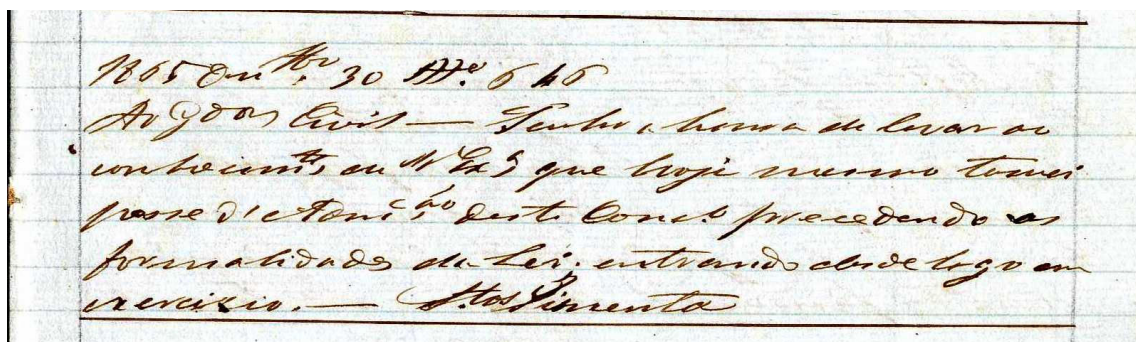 1865 30 Nº 646
Ao Gdor Civil — Tenho a honra de levar ao
conhecimto de V Exª que hoje mesmo tomei
posse d'Admção deste Conco precedendo as
formalidades da Lei, entrando desde logo em
exercizio. — Stos Pimenta